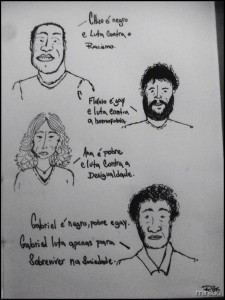 é negro
e luta contra o
Racismo.
Flávio é gay
e luta contra
a homofobia
Ana é pobre
e luta contra a
Desigualdade.
Gabriel é negro, pobre e gay.
Gabriel luta apenas para
Sobreviver na Sociedade.